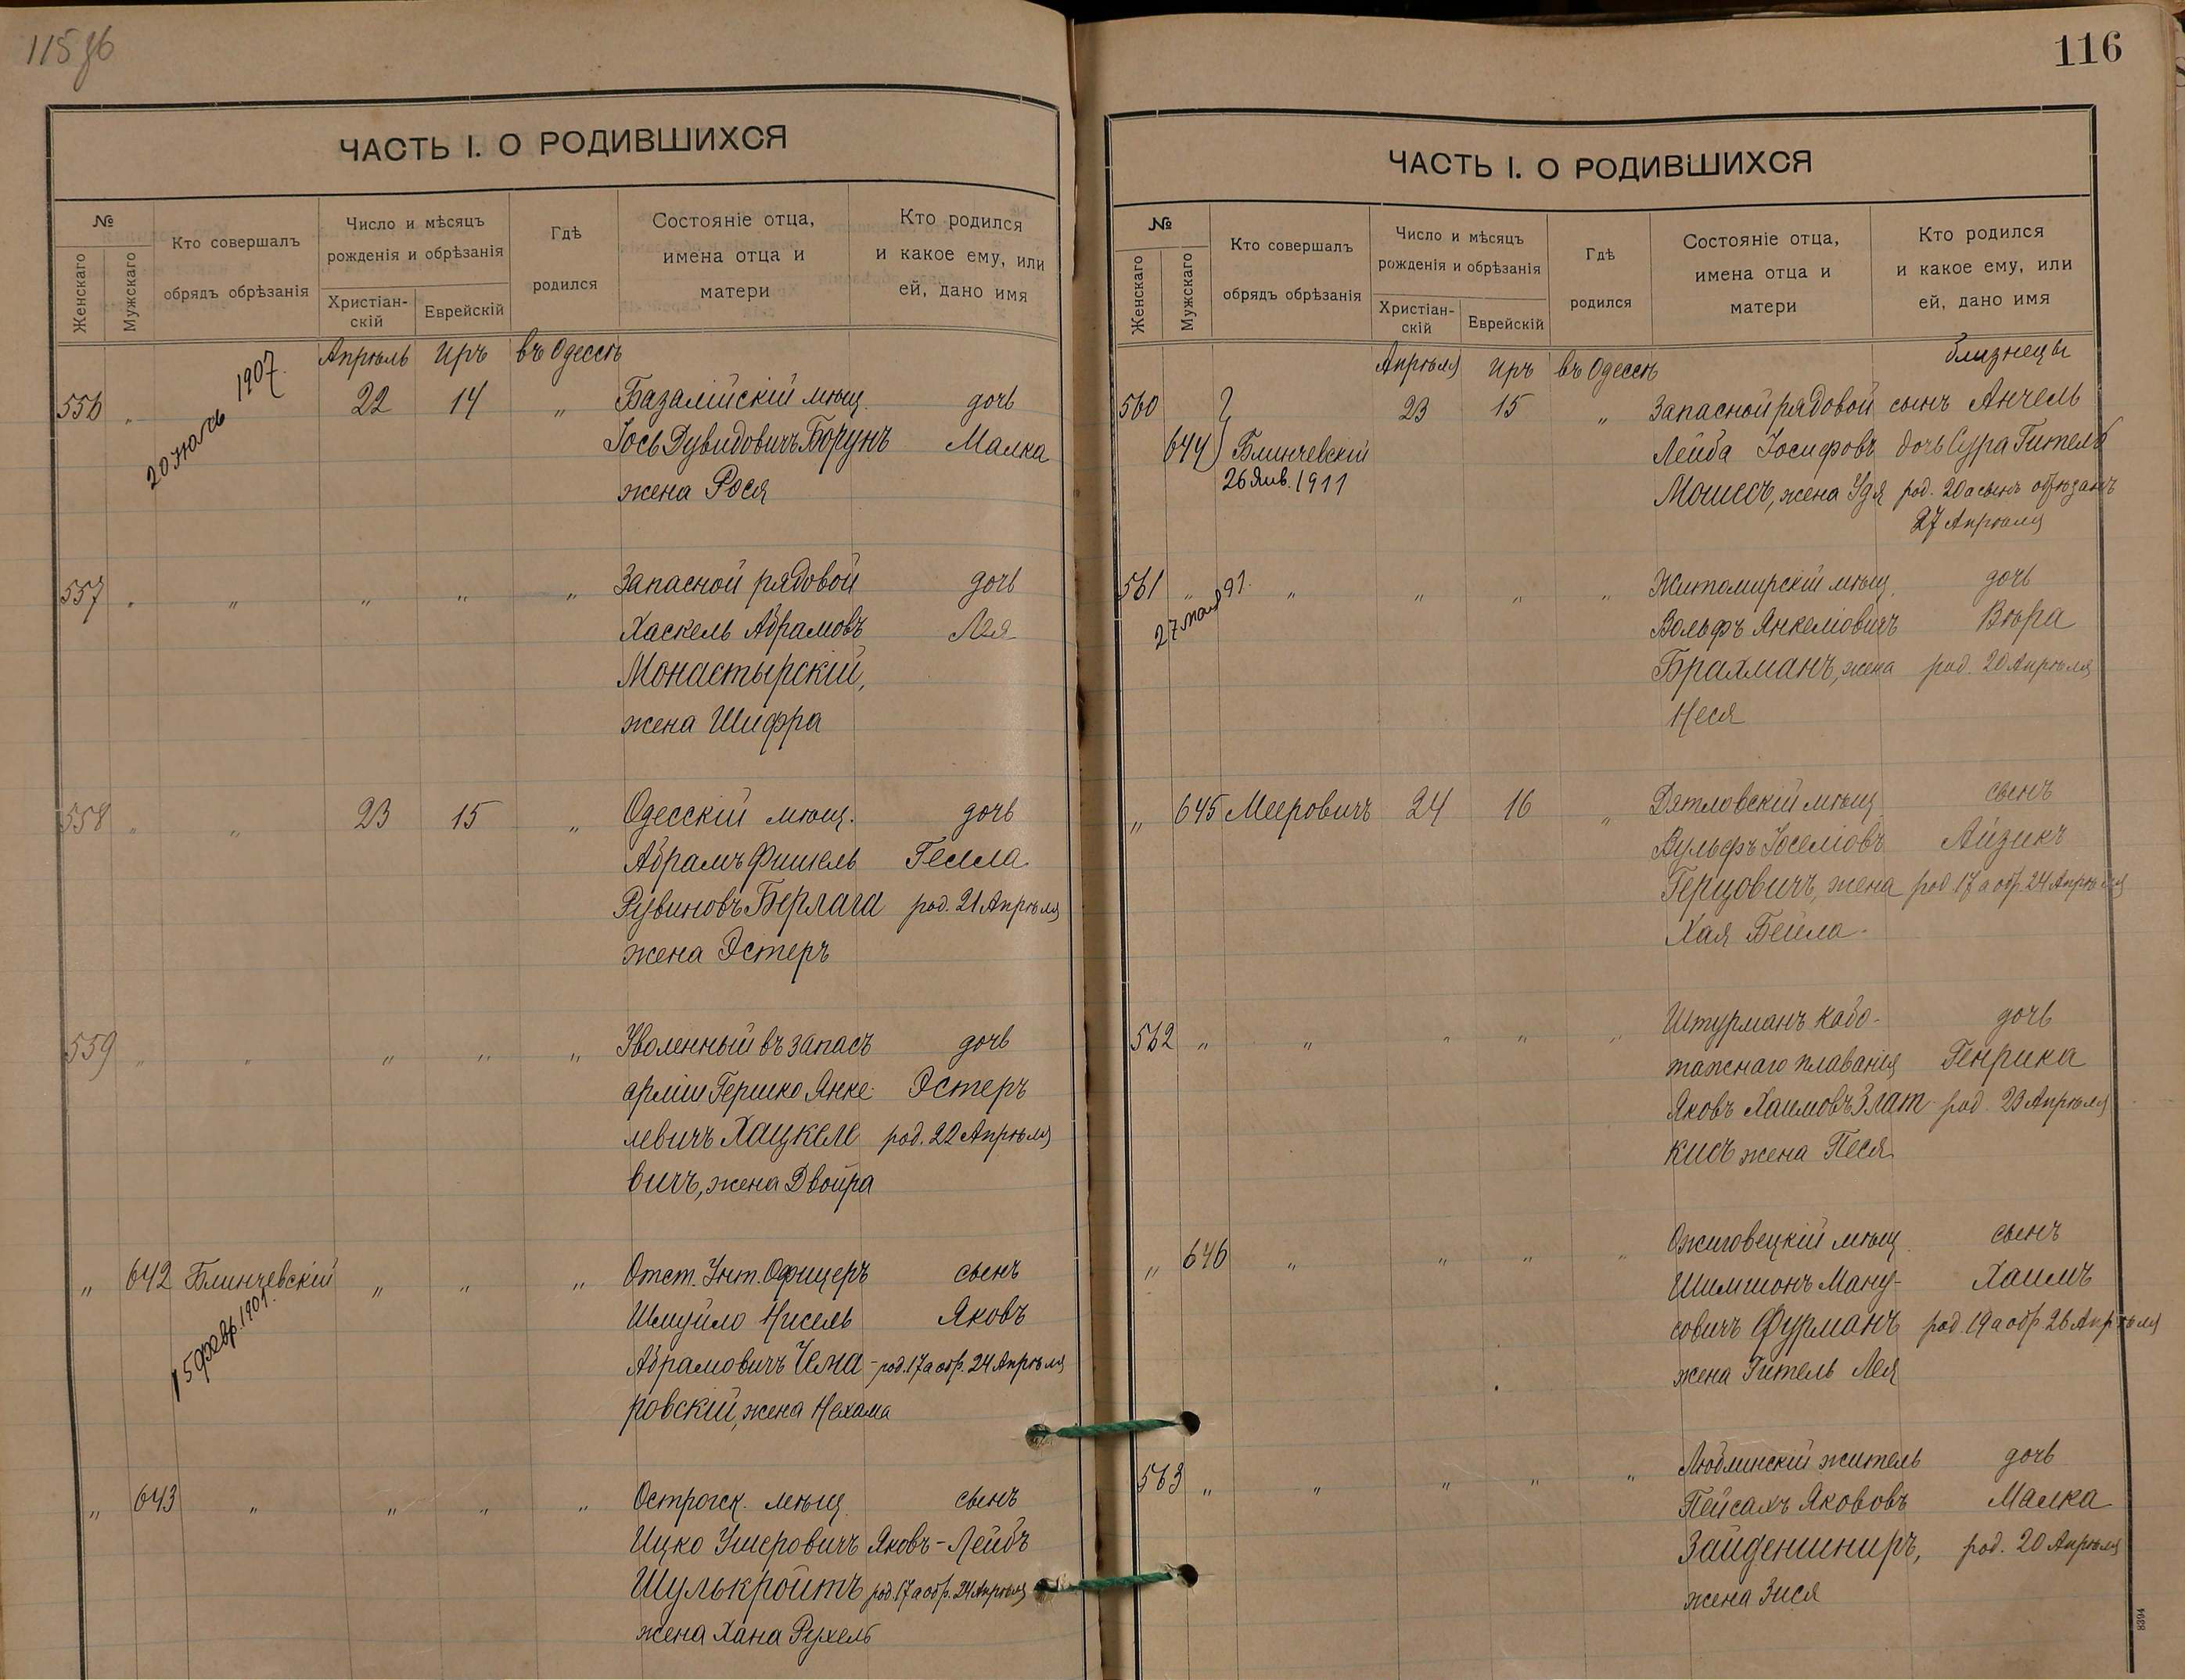 115 об
ЧАСТЬ I. О РОДИВШИХСЯ
№
Женскаго
Мужскаго
Кто совершалъ
обрядъ обрѣзанія
Число и мѣсяцъ
рожденія и обрѣзанія
Христіан-
скій
Еврейскій
Гдѣ
родился
Состояніе отца,
имена отца и
матери
Кто родился
и какое ему, или
ей, дано имя
Апрѣль Иръ въ Одессѣ
556 „ 22 14 „ Базалійскій мѣщ. дочь
20 1907.
Іось Дувидовичъ Борунъ Малка
жена Рося
557 „ „ „ „ „ Запасной рядовой дочь
Хаскель Абрамовъ Лея
Монастырскій,
жена Шифра
558 „ „ 23 15 „ Одесскій мѣщ. дочь
Абрамъ Фишель Гейла
Рувиновъ Берлага род. 21 Апрѣля
жена Эстеръ
559 „ „ „ „ „ Уволенный въ запасъ дочь
арміи Гершко Янке- Эстеръ
левичъ Хацкеле род. 22 Апрѣля
вичъ, жена Двойра
„ 642 Блинчевскій „ „ „ Отст. Унт. Офицеръ сынъ
15 февр. 1901.
Шмуйло Нисель Яковъ
Абрамовичъ Чема- род. 17 а обр. 24 Апрѣля
ровскій, жена Нехама
„ 643 „ „ „ „ Острогск. мѣщ. сынъ
Ицко Ушеровичъ Яковъ-Лейбъ
Шулькройтъ род. 17 а обр. 24 Апрѣля
жена Хана Рухель
116
ЧАСТЬ I. О РОДИВШИХСЯ
№
Женскаго
Мужскаго
Кто совершалъ
обрядъ обрѣзанія
Число и мѣсяцъ
рожденія и обрѣзанія
Христіан-
скій
Еврейскій
Гдѣ
родился
Состояніе отца,
имена отца и
матери
Кто родился
и какое ему, или
ей, дано имя
Апрѣля Иръ въ Одессѣ близнецы
560 23 15 „ Запасной рядовой сынъ Анчель
644 Блинчевскій Лейба Іосифовъ дочь Сура Гитель
26 Янв. 1911 Мошесъ, жена Удя род. 20 а сынъ обрѣзанъ
27 Апрѣля
561 „ „ „ „ „ Житомирскій мѣщ. дочь
27 мая 91.
Вольфъ Янкеліовичъ Вѣра
Брахманъ, жена род. 20 Апрѣля
Неся
„ 645 Мееровичъ 24 16 „ Дятловскій мѣщ. сынъ
Вульфъ Іоселіовъ Айзикъ
Герцовичъ, жена род. 17 а обр. 24 Апрѣля
Хая Бейла
562 „ „ „ „ „ Штурманъ кабо- дочь
тажнаго плаванія Генрика
Яковъ Хаимовъ Злат- род. 23 Апрѣля
кисъ жена Песя
„ 646 „ „ „ „ Ожиговецкій мѣщ. сынъ
Шимшонъ Ману- Хаимъ
совичъ Фурманъ род 19 а обр 26 Апрѣля
жена Гитель Лея
563 „ „ „ „ „ Люблинскій житель дочь
Пейсахъ Якововъ Малка
Зайденшниръ, род. 20 Апрѣля
жена Зися
8394